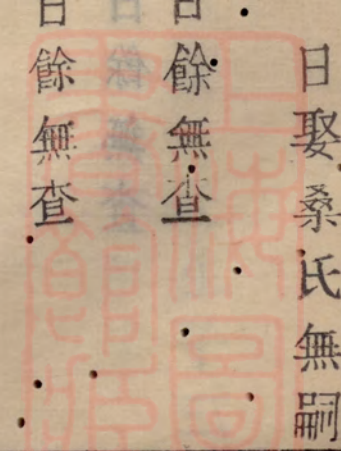 日娶桑氏無嗣
日餘無查
日餘無查